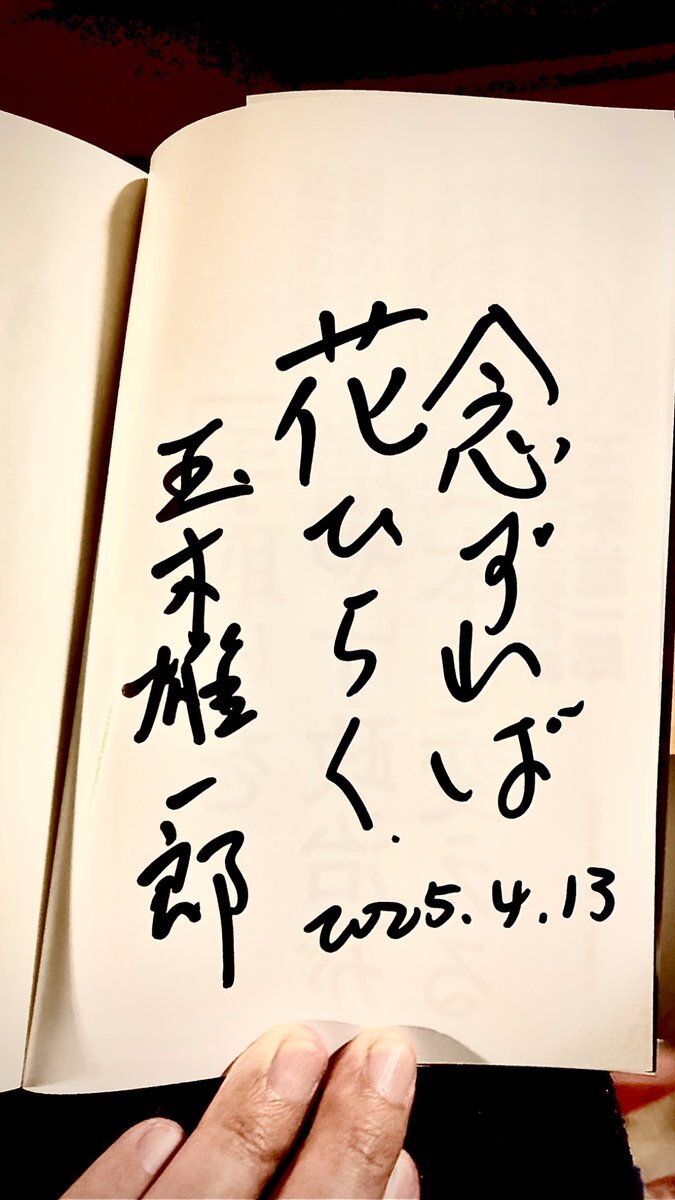 念ずれば
花ひらく.
2025.4.13
玉木雄一郎